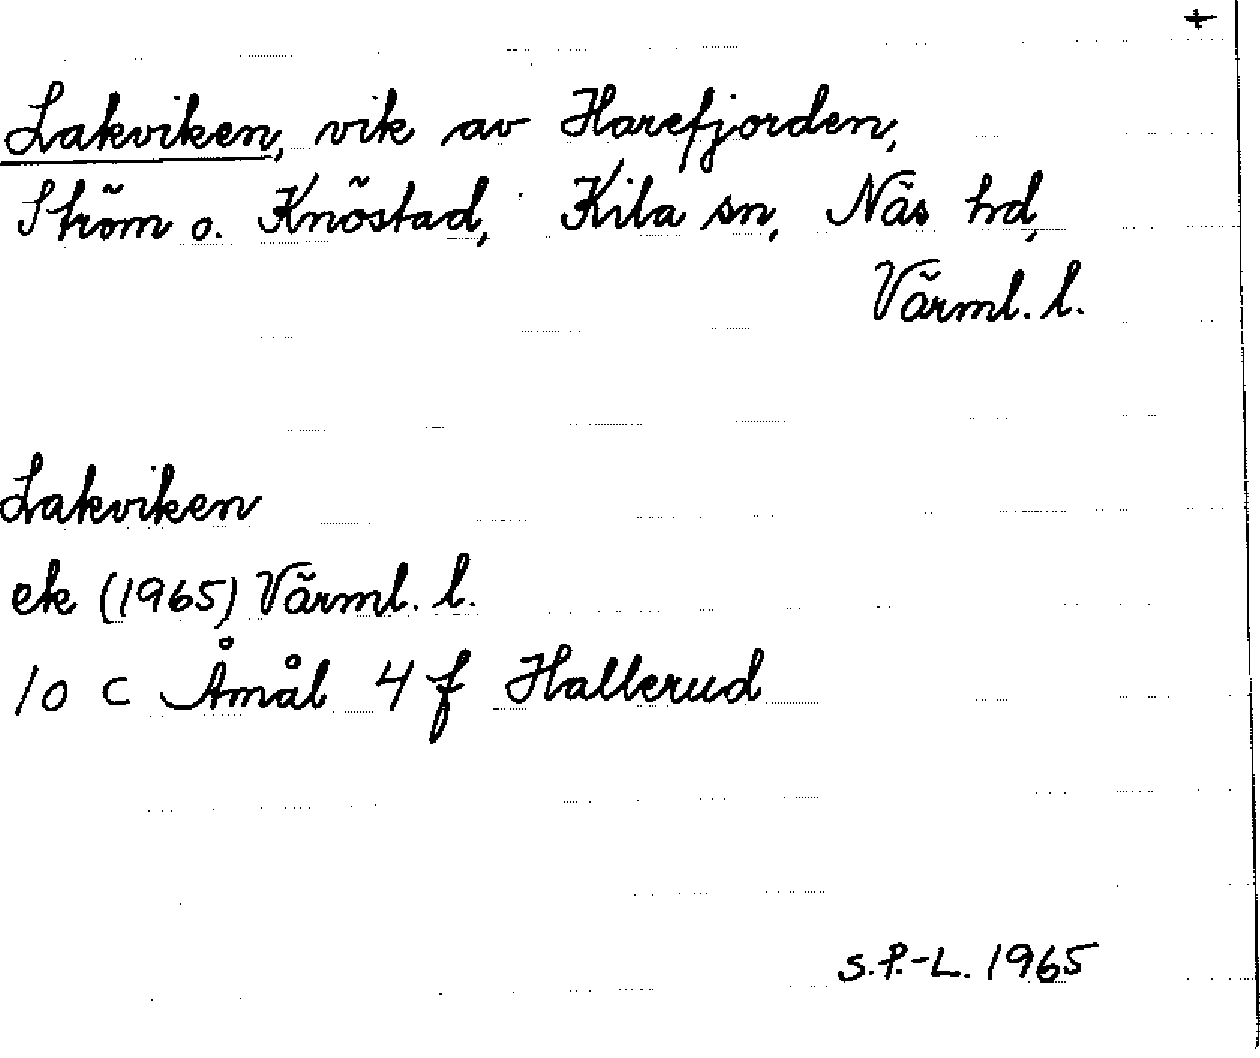 +
Lakviken, vik av Harefjorden,
Ström o. Knöstad, Kila sn, Näs hd,
Värml. l.
Lakviken
ek (1965) Värml. l.
10 C Åmål 4 f Hallerud
S.P.-L. 1965